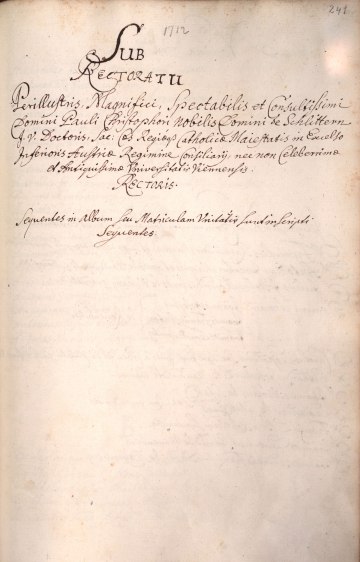 241
1712
SUB
RECTORATU
Perillustris, Magnifici, Spectabilis et Consultissimi
Domini Pauli Christophori Nobilis Domini de Schlittern
J. V. Doctoris, Sac: Cæs Regiæqȝ Catholicæ Maiestatis in Excelso
Inferioris Austriæ Regimine Consiliarij, nec non Celeberrimæ
et Antiquissimæ Universitatis Viennensis
RECTORIS.
Sequentes in Album seu Matriculam Vnitatis sunt inscripti
Sequentes.